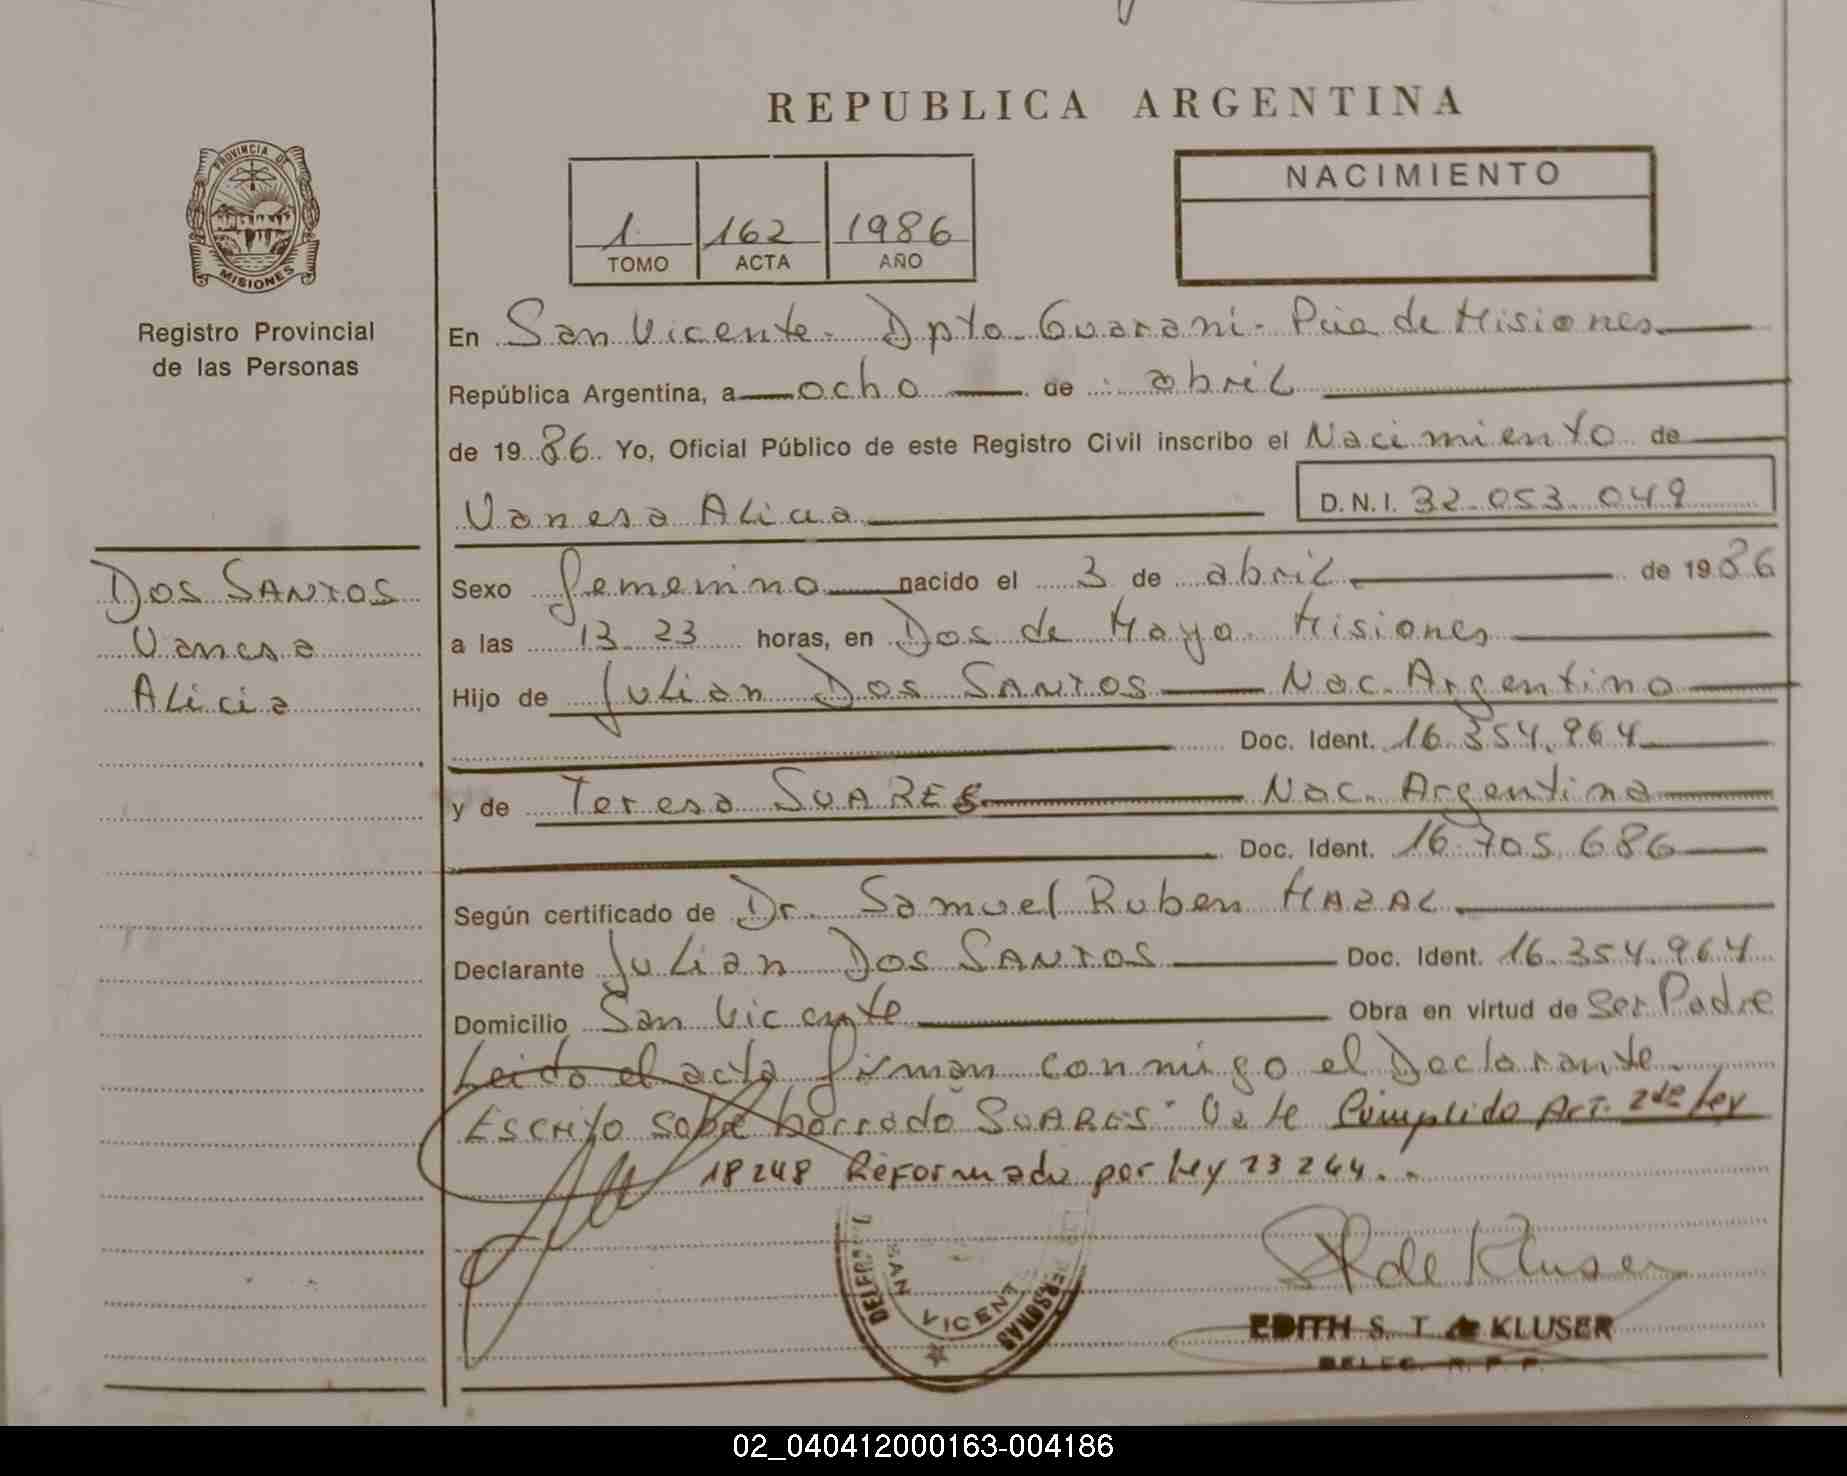 REPUBLICA ARGENTINA
PROVINCIA DE
MISIONES
Registro Provincial
de las Personas
1 162 1986
TOMO ACTA AÑO
NACIMIENTO
En San Vicente - Dpto. Guarani - Pcia de Misiones
República Argentina, a ocho de abril
de 1986 Yo, Oficial Público de este Registro Civil inscribo el Nacimiento de
Vanesa Alicia D.N.I. 32.053.049
DOS SANTOS
Vanesa
Alicia
Sexo femenino nacido el 3 de abril de 1986
a las 13 23 horas, en Dos de Mayo. Misiones
Hijo de Julian DOS SANTOS Nac. Argentino
Doc. Ident. 16.354.964
y de Teresa SUARES Nac. Argentina
Doc. Ident. 16.705.686
Según certificado de Dr. Samuel Ruben MAZAL
Declarante Julian DOS SANTOS Doc. Ident. 16.354.964
Domicilio San Vicente Obra en virtud de Ser Padre
Leida el acta firman conmigo el Declarante.
Escrito sobre borrado SUARES" Vale Cumplido Art. 2do Ley
18248 Reformada por Ley 23264..
SAN VICENTE
PERSONAS
de Kluser
EDITH S. T. de KLUSER
DELEG. R. P. P.
02_040412000163-004186